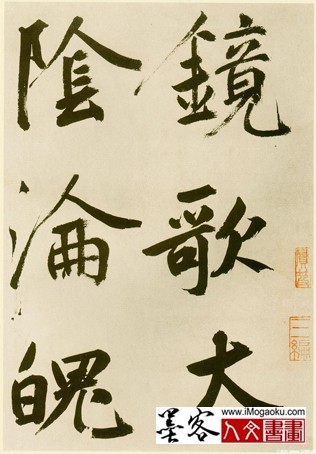 鏡歌大
陰淪魄
墨客
www.iMogaoku.com
人文書畫